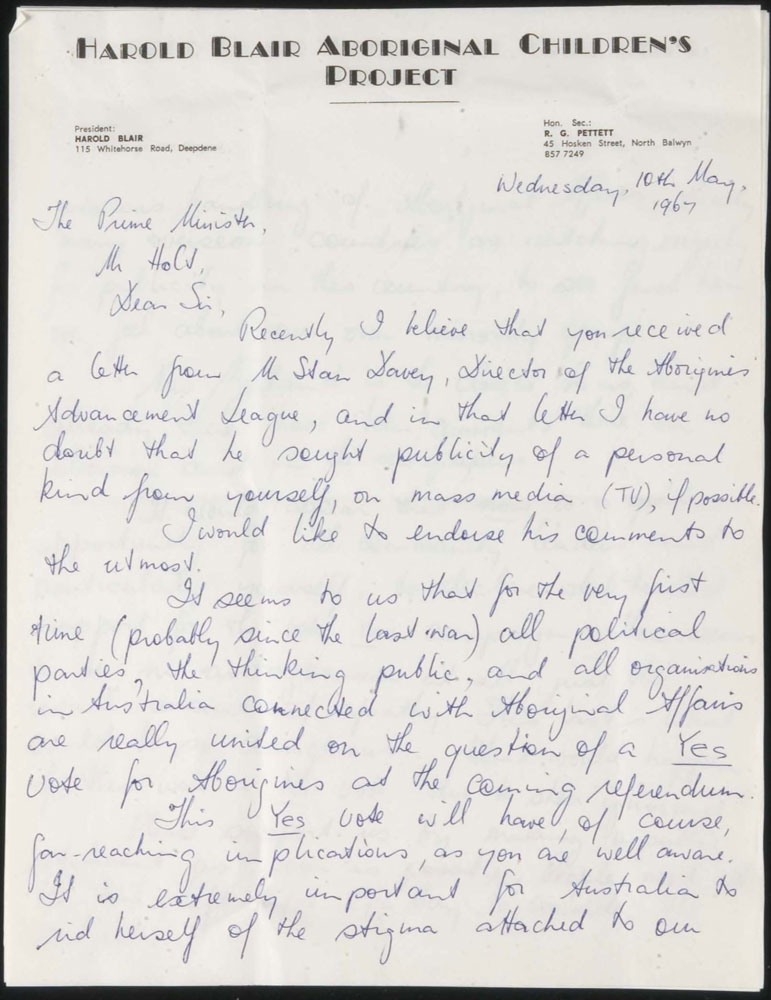 HAROLD BLAIR ABORIGINAL CHILDREN'S
PROJECT
President:
HAROLD BLAIR
115 Whitehorse Road, Deepdene
Hon. Sec.:
R. G. PETTETT
45 Hosken Street, North Balwyn
857 7249
Wednesday, 10th May,
1967
The Prime Minister,
Mr Holt,
Dear Sir,
Recently I believe that you received
a letter from Mr Stan Davey, Director of the Aborigines
Advancement League, and in that letter I have no
doubt that he sought publicity of a personal
kind from yourself, on mass media (TV), if possible.
I would like to endorse his comments to
the utmost.
It seems to us that for the very first
time (probably since the last war) all political
parties, the thinking public, and all organisations
in Australia connected with Aboriginal Affairs
are really united on the question of a Yes
vote for Aborigines at the coming referendum.
This Yes vote will have, of course,
far-reaching implications, as you are well aware.
It is extremely important for Australia to
rid herself of the stigma attached to our